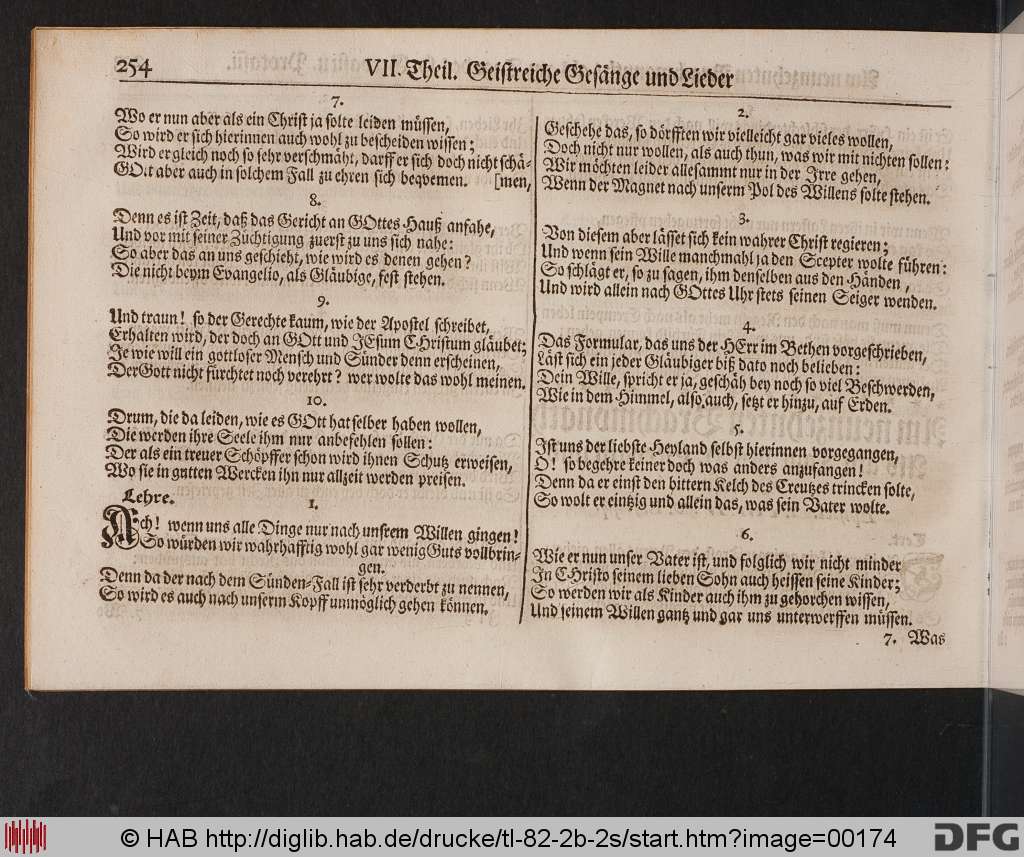 254
VII. Theil. Geistreiche Gesänge und Lieder
7.
Wo er nun aber als ein Christ ja solte leiden müssen,
So wird er sich hierinnen auch wohl zu bescheiden wissen;
Wird er gleich noch so sehr verschmäht, darff er sich doch nicht schä-
GOtt aber auch in solchem Fall zu ehren sich beqvemen. [men,
8.
Denn es ist Zeit, daß das Gericht an GOttes Hauß anfahe,
Und vor mit seiner Züchtigung zuerst zu uns sich nahe:
So aber das an uns geschieht, wie wird es denen gehen?
Die nicht beym Evangelio, als Gläubige, fest stehen.
9.
Und traun! so der Gerechte kaum, wie der Apostel schreibet,
Erhalten wird, der doch an GOtt und JEsum CHristum gläubet;
Je wie will ein gottloser Mensch und Sünder denn erscheinen,
Der Gott nicht fürchtet noch verehrt? wer wolte das wohl meinen.
10.
Drum, die da leiden, wie es GOtt hat selber haben wollen,
Die werden ihre Seele ihm nur anbefehlen sollen:
Der als ein treuer Schöpffer schon wird ihnen Schutz erweisen,
Wo sie in gutten Wercken ihn nur allzeit werden preisen.
Lehre.
1.
Ach! wenn uns alle Dinge nur nach unsrem Willen gingen!
So würden wir wahrhafftig wohl gar wenig Guts vollbrin-
gen.
Denn da der nach dem Sünden-Fall ist sehr verderbt zu nennen,
So wird es auch nach unserm Kopff unmöglich gehen können.
2.
Geschehe das, so dörfften wir vielleicht gar vieles wollen,
Doch nicht nur wollen, als auch thun, was wir mit nichten sollen:
Wir möchten leider allesammt nur in der Irre gehen,
Wenn der Magnet nach unserm Pol des Willens solte stehen.
3.
Von diesem aber lässet sich kein wahrer Christ regieren;
Und wenn sein Wille manchmahl ja den Scepter wolte führen:
So schlägt er, so zu sagen, ihm denselben aus den Händen,
Und wird allein nach GOttes Uhr stets seinen Seiger wenden.
4.
Das Formular, das uns der HErr im Bethen vorgeschrieben,
Läst sich ein jeder Gläubiger biß dato noch belieben:
Dein Wille, spricht er ja, geschäh bey noch so viel Beschwerden,
Wie in dem Himmel, also auch, setzt er hinzu, auf Erden.
5.
Ist uns der liebste Heyland selbst hierinnen vorgegangen,
O! so begehre keiner doch was anders anzufangen!
Denn da er einst den bittern Kelch des Creutzes trincken solte,
So wolt er eintzig und allein das, was sein Vater wolte.
6.
Wie er nun unser Vater ist, und folglich wir nicht minder
In CHristo seinem lieben Sohn auch heissen seine Kinder;
So werden wir als Kinder auch ihm zu gehorchen wissen,
Und seinem Willen gantz und gar uns unterwerffen müssen.
7. Was
© HAB http://diglib.hab.de/drucke/tl-82-2b-2s/start.htm?image=00174
DFG